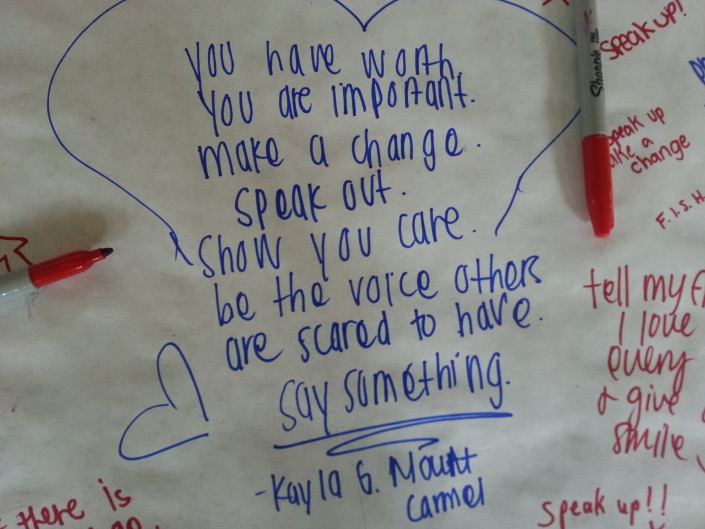 you have worth
you are important.
make a change.
speak out.
show you care.
be the voice others
are scared to have.
say something.
-Kayla G. Mount
Carmel
Sharpie
speak up!
speak up
like a
change
F.I.S.H
tell my
I love
every
& give
smile
speak up!!
there is